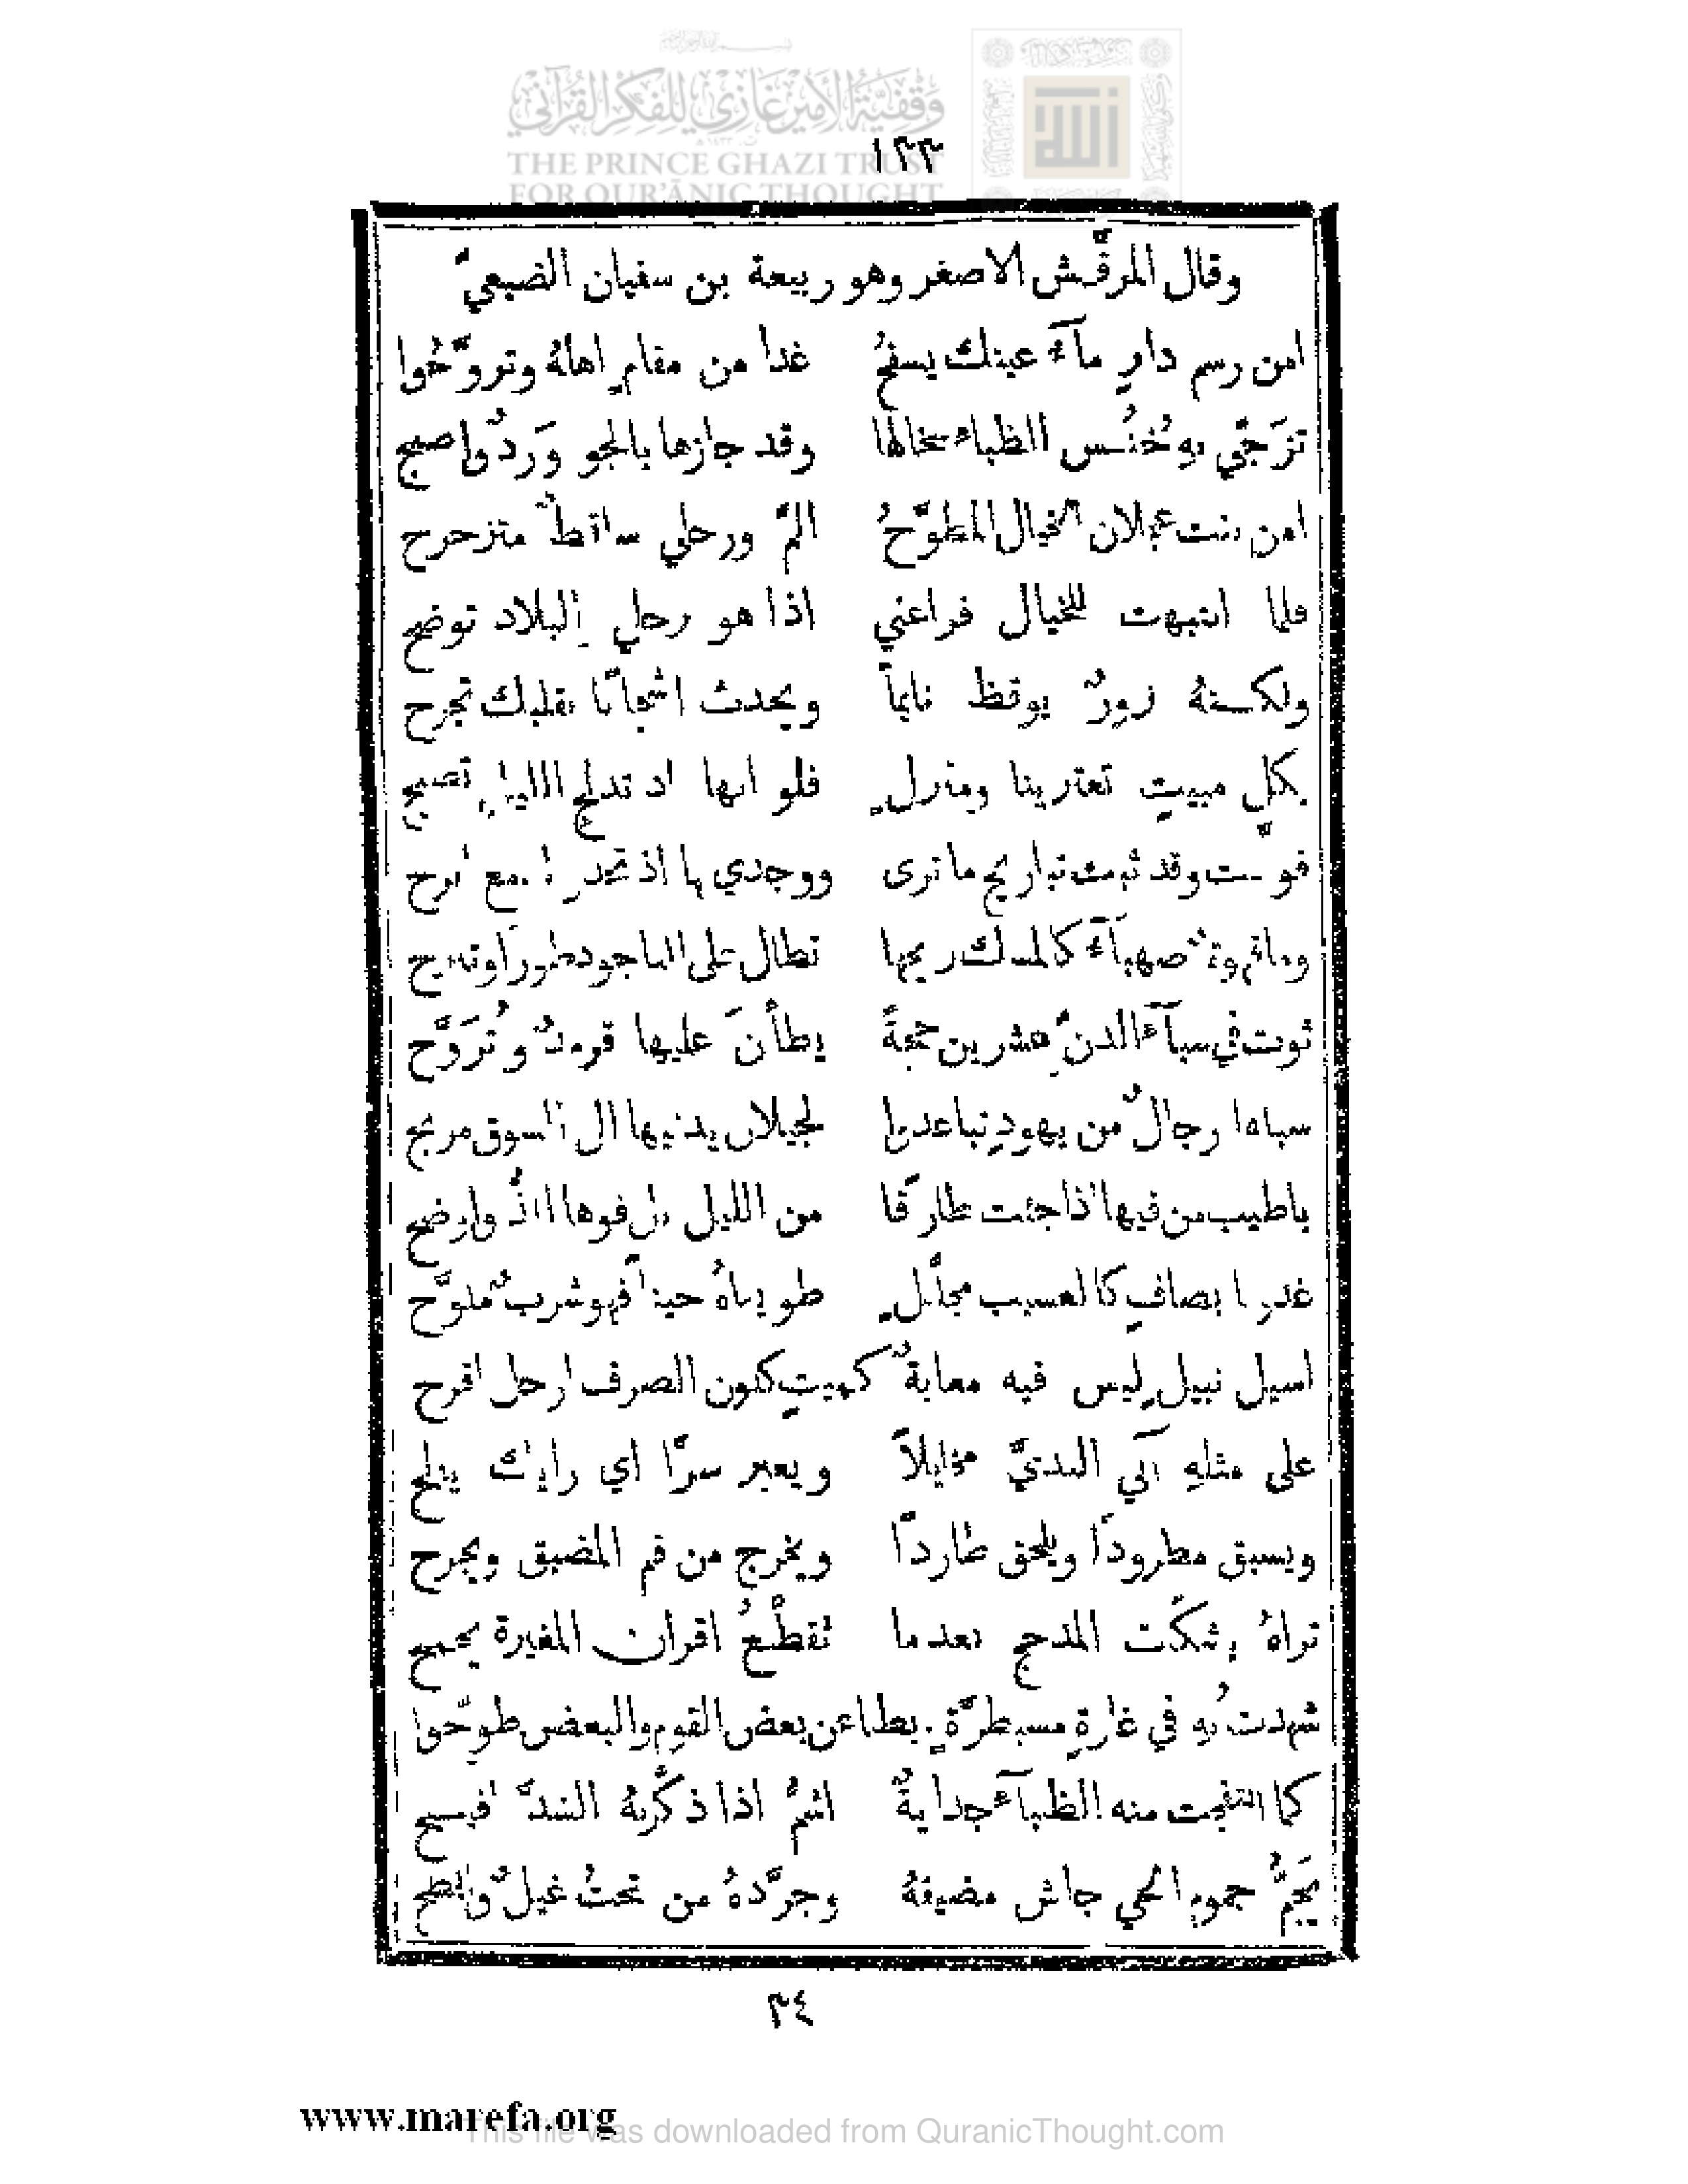 وقفية الأمير غازي للفكر القرآني
THE PRINCE GHAZI TRUST
FOR QUR'ĀNIC THOUGHT
١٣٣
وقال المرقّش الاصغر وهو ربيعة بن سفيان الضبعيّ
امن رسم دارٍ مآءُ عينك يسفحُ غدا من مقامٍ اهلهُ وتروَّحُوا
تزَجّي بهِ خُنُس الظباء سخالها وقد جازها بالجو وَردٌ واصبح
امن بنت عجلان الخيال المطوَّحُ المَّ ورحلي ساقطٌ متزحزح
فلما انتبهت للخيال فراعني اذا هو رحلي والبلاد توضح
ولكنهُ زورٌ يوقظ نايماً ويحدث اشجانًا بقلبك تجرح
بكل مبيتٍ تعترينا ومنزلٍ فلو انها اذ تدلج الليل تصبح
فولّت وقد تباريح ما ترى ووجدي بها اذ تحدر
وما قهوةٌ صهبآءُ كالمسك ريحها تطال على الناجود طوراً
ثوت في سبآء الدنِّ عشرين حجةً يطأن عليها قرمدٌ وتُرَوَّح
سباها رجالٌ من يهودٍ تباعدوا لجيلان يدنيها الى السوق مربح
باطيب من فيها اذا جئت طارقًا من الليل بل فوها الذُّ وانضح
غدونا بصافٍ كالعسيب مجلّلٍ طويناهُ حيناً فهو شربٌ ملوَّح
اسيل نبيل ليس فيه معابةٌ كميتٍ كلون الصرف ارجل اقرح
على مثلهِ آتي النديَّ مخايلاً ويعبر سرًّا اي
ويسبق مطرودًا ويلحق طاردًا ويخرج من فم المضيق ويجرح
تراهُ بشكّت المدجج بعدما تقطّعُ اقران المغيرة يجمح
شهدت بهِ في غارةٍ مسبطرَّةٍ يطاعن بعض القوم والبعض طوّحوا
كما انتفجت منه الظبآء جدايةٌ اشمُّ اذا ذكّرتهُ الشدّ افيح
يَجُمُّ جموم الحي جاش مضيفهُ وجرَّدهُ من تحتُ غيلٌ وابطح
٣٤
www.marefa.org
This file was downloaded from QuranicThought.com